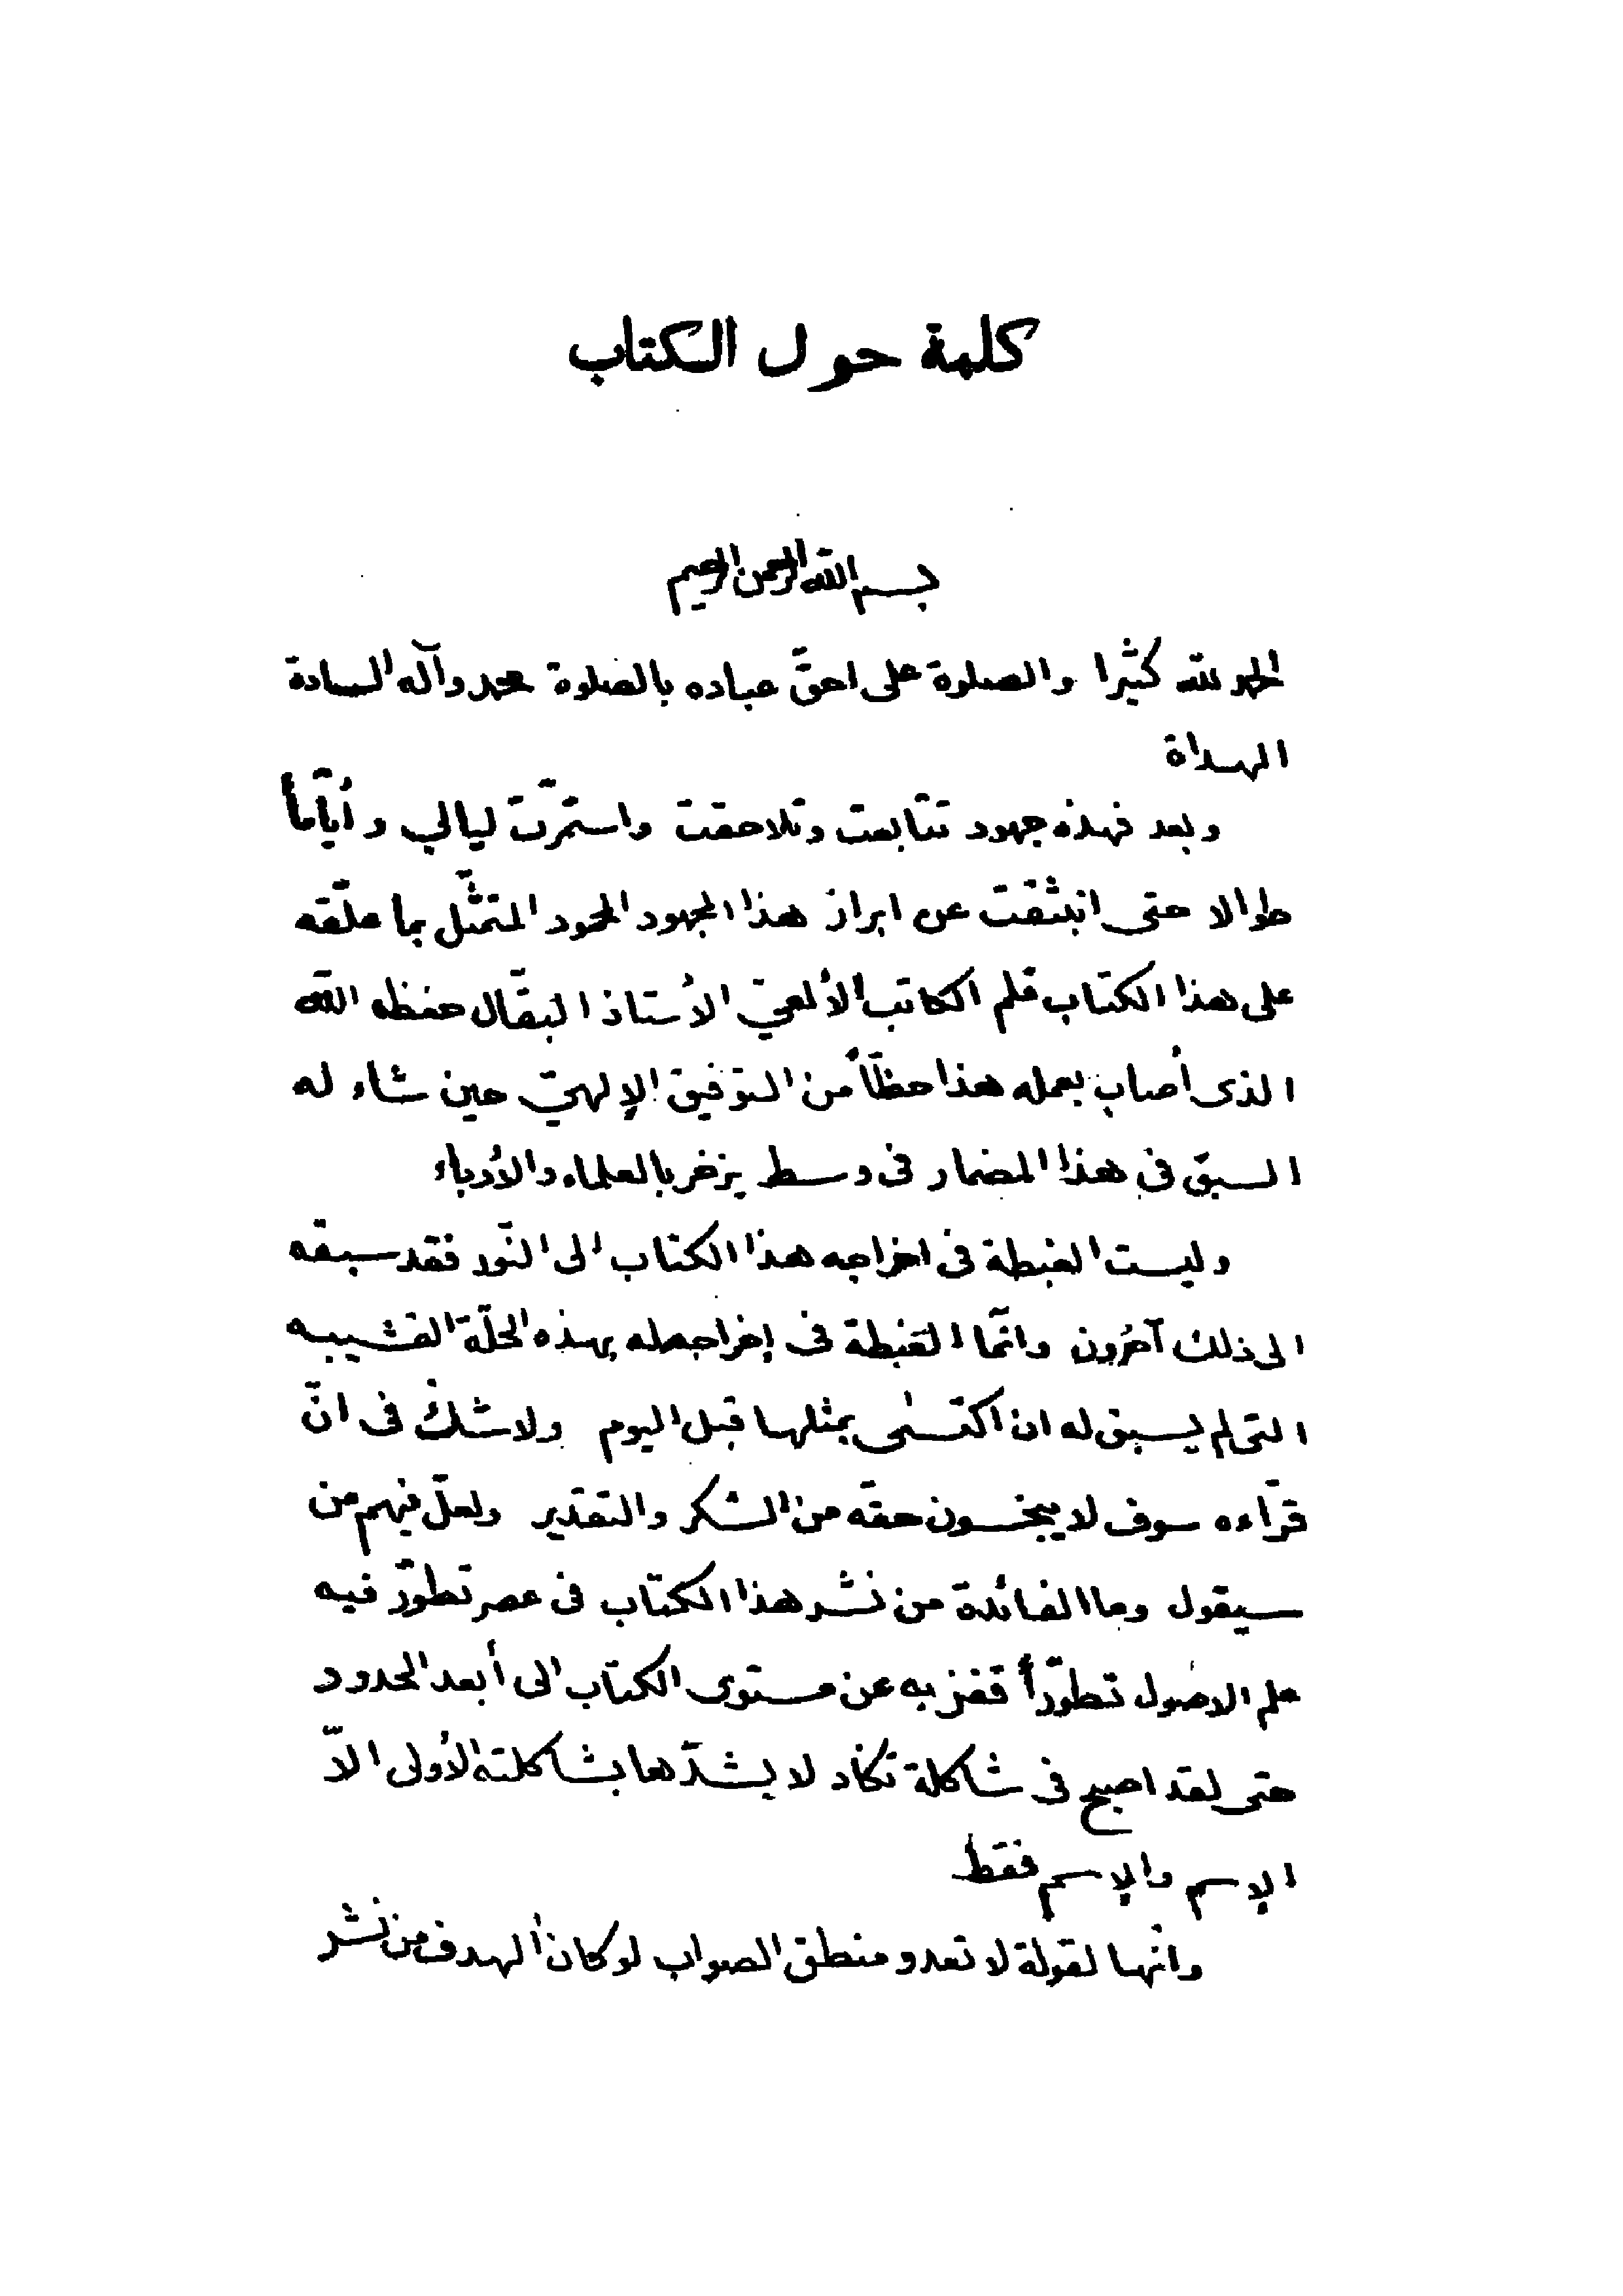 كلمة حول الكتاب
بسم الله الرحمن الرحيم
الحمد لله كثيرا والصلوة على احقّ عباده بالصلوة محمد وآله السادة
الهداة
وبعد فهذه جهود تتابعت وتلاحقت واستمرّت ليالي وأيّاماً
طوالا حتى انبثقت عن ابراز هذا المجهود المحمود المتمثّل بما علّقه
على هذا الكتاب قلم الكاتب الألمعيّ الأستاذ البقّال حفظه الله
الذى أصاب بعمله هذا حظّاً من التوفيق الإلهيّ حين شاء له
السبق فى هذا المضمار فى وسط يزخر بالعلماء والأدباء
وليست الغبطة فى اخراجه هذا الكتاب الى النّور فقد سبقه
الى ذلك آخرون وانّما الغبطة فى إخراجه له بهذه الحلّة القشيبه
التى لم يسبق له ان اكتسى بمثلها قبل اليوم ولا شكّ فى انّ
قرّاءه سوف لا يبخسون حقّه من الشكر والتقدير ولعلّ فيهم من
سيقول وما الفائدة من نشر هذا الكتاب فى عصر تطوّر فيه
علم الاصول تطوّراً قفز به عن مستوى الكتاب الى أبعد الحدود
حتى لقد اصبح فى شاكلة تكاد لا يشدّها بشاكلته الأولى الاّ
الإسم والإسم فقط
وانّها لقولة لا تعدو منطق الصواب لو كان الهدف من نشر